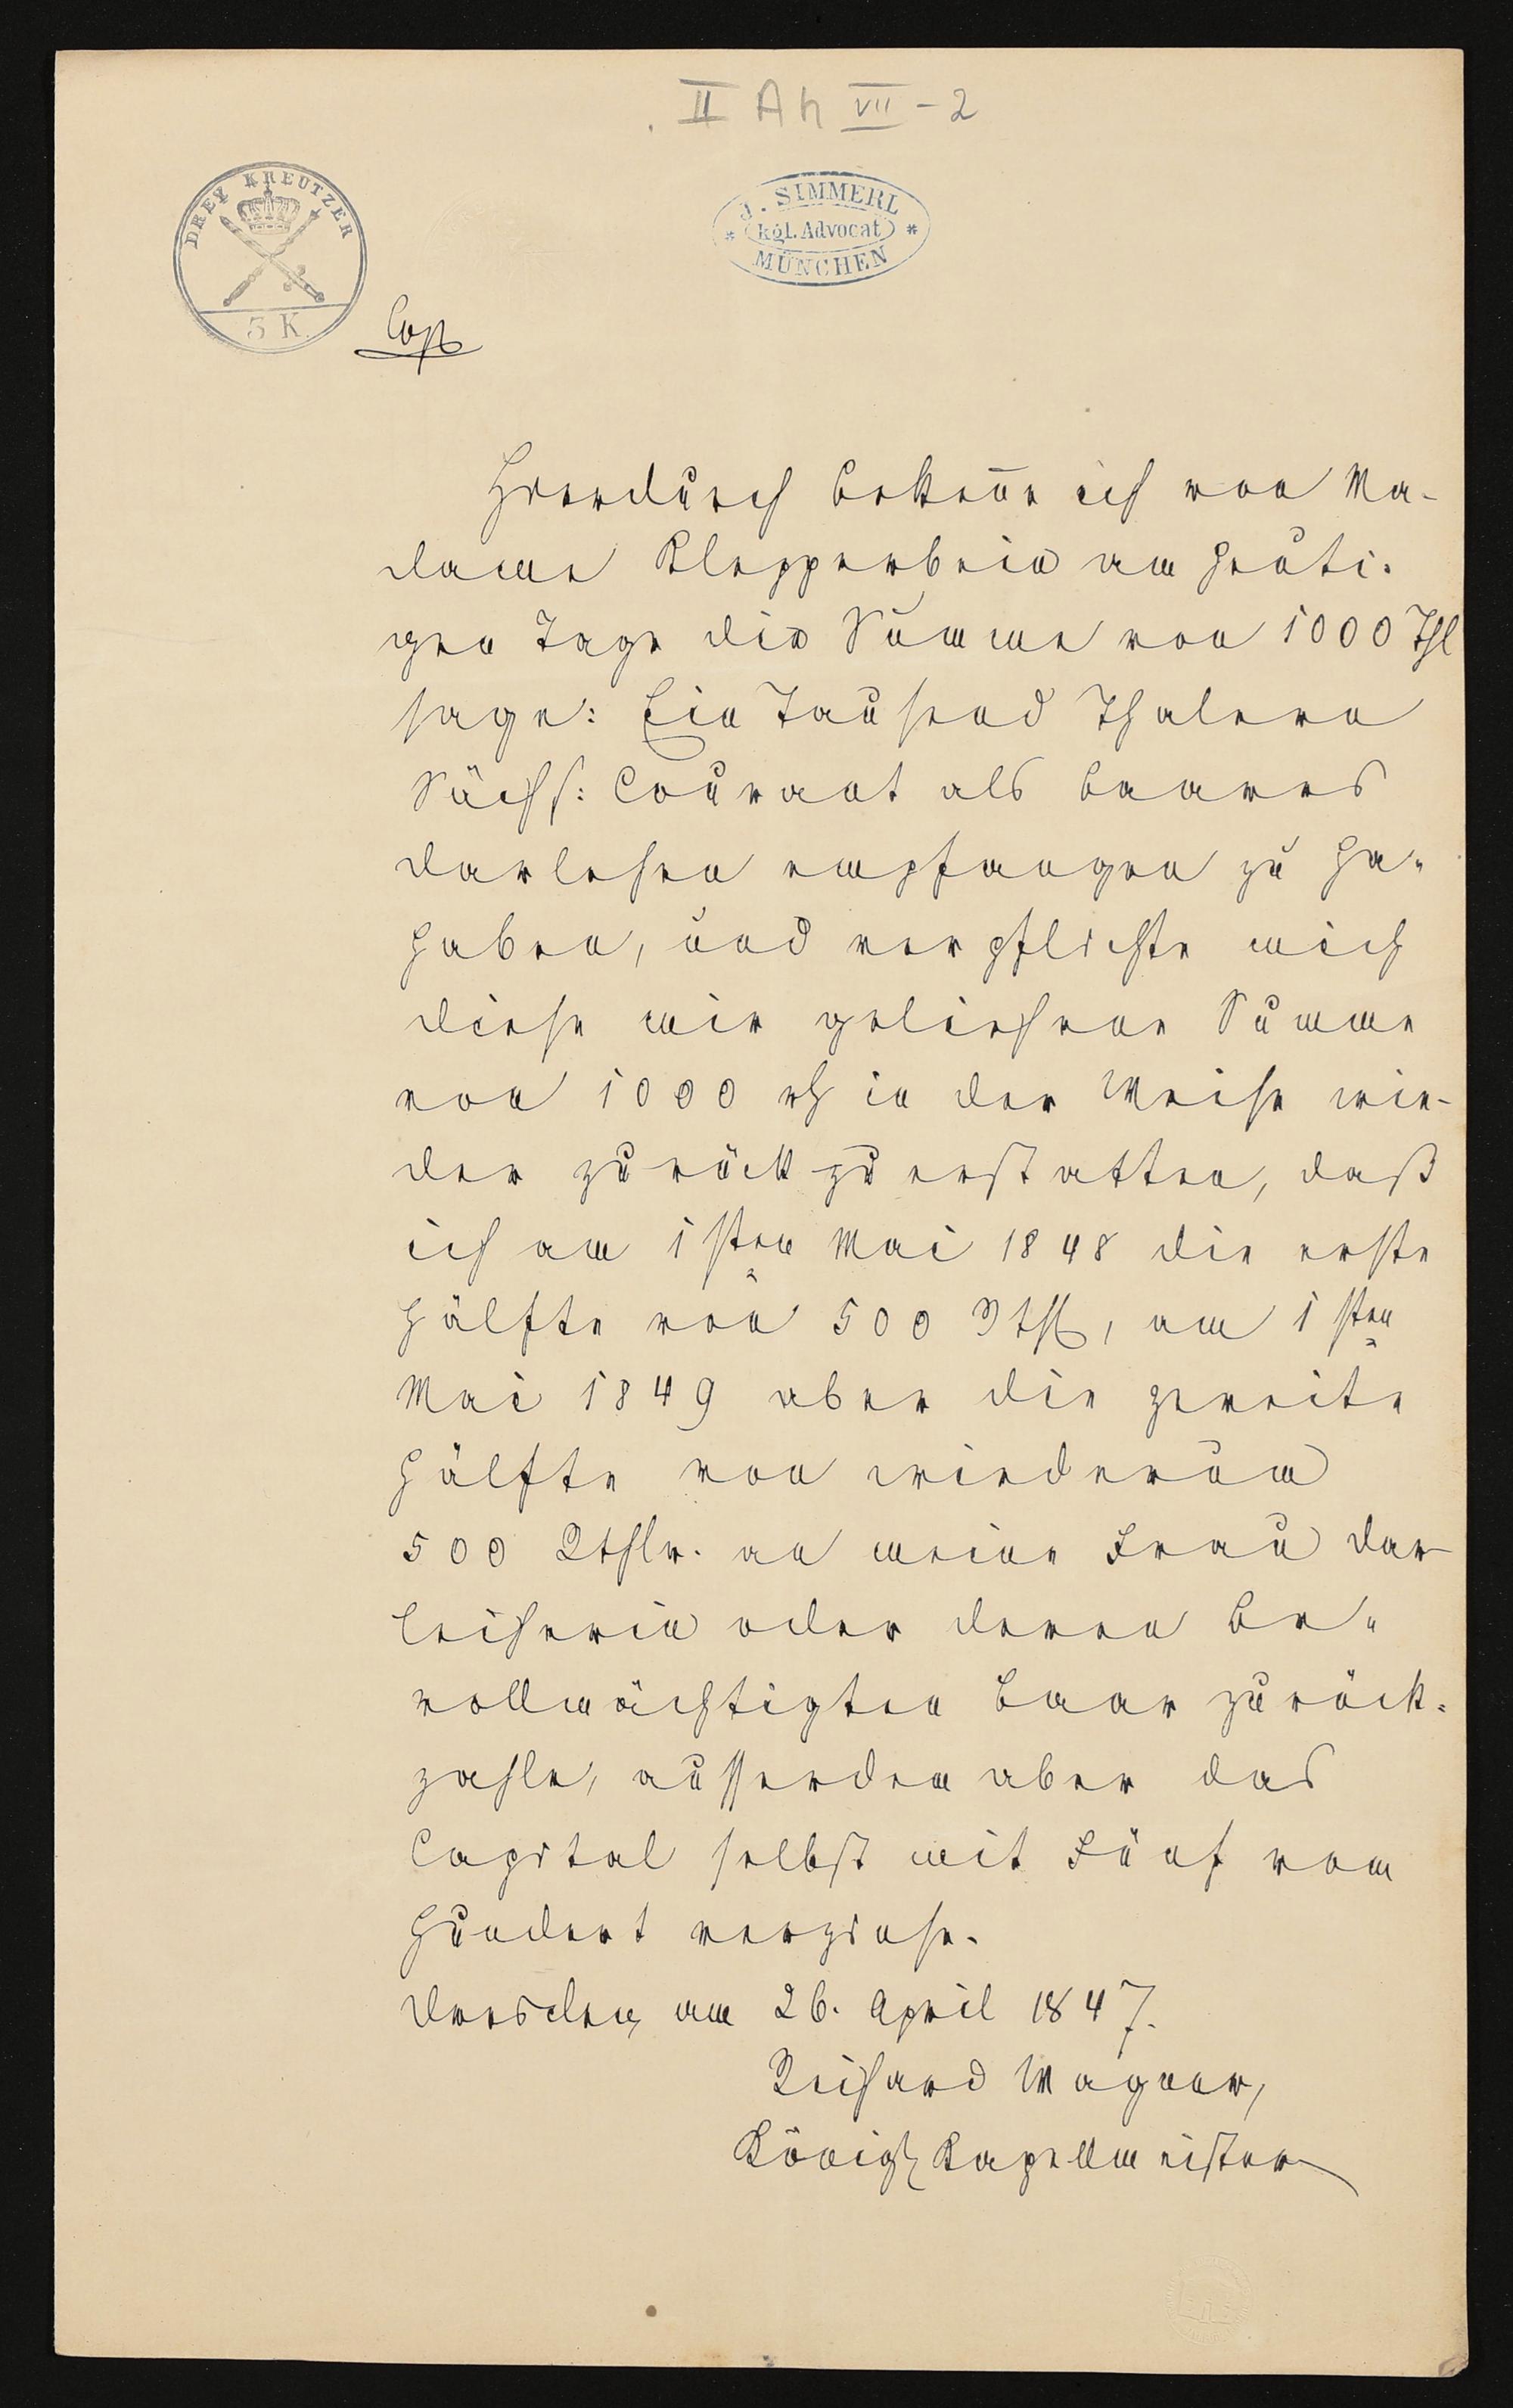 II Ah VII - 2
DREY KREUTZER
3 K.
J. SIMMERL
* kgl. Advocat *
MÜNCHEN
Cop
Hierdurch bekeñe ich von Ma-
dame Klepperbein am heuti-
gen Tage die Summe von 1000 Thl
sage: Ein Tausend Thalern
Sächs: Courant als baares
Darlehen empfangen zu ha-
haben, und verpflichte mich
diese mir geliehene Summe
von 1000 rh in der Weise wie-
der zurück zu erstatten, daß
ich am 1sten Mai 1848 die erste
Hälfte von 500 Rthl, am 1sten
Mai 1849 aber die zweite
Hälfte von wiederum
500 Rthlr. an meine Frau Dar
leiherin oder deren Be-
vollmächtigten baar zurück-
zahle, ausserdem aber das
Capital selbst mit Fünf vom
Hundert verzinse.
Dresden, am 26. April 1847.
Richard Wagner,
Königl Kapellmeister